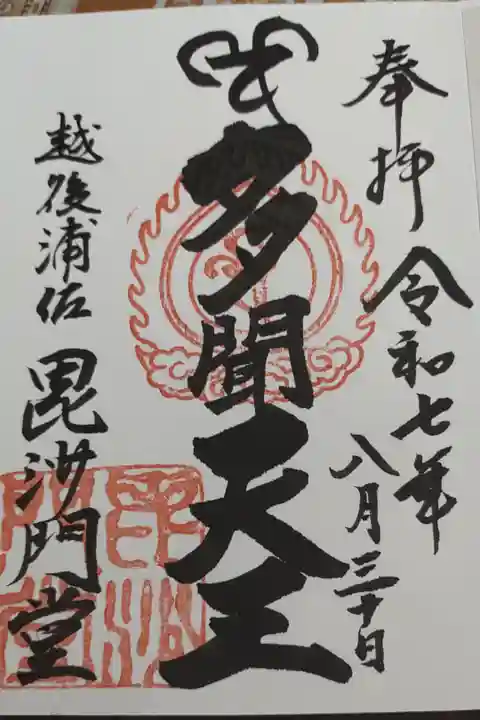 奉拝 令和七年
八月三十日
多聞天王
越後浦佐 毘沙門堂